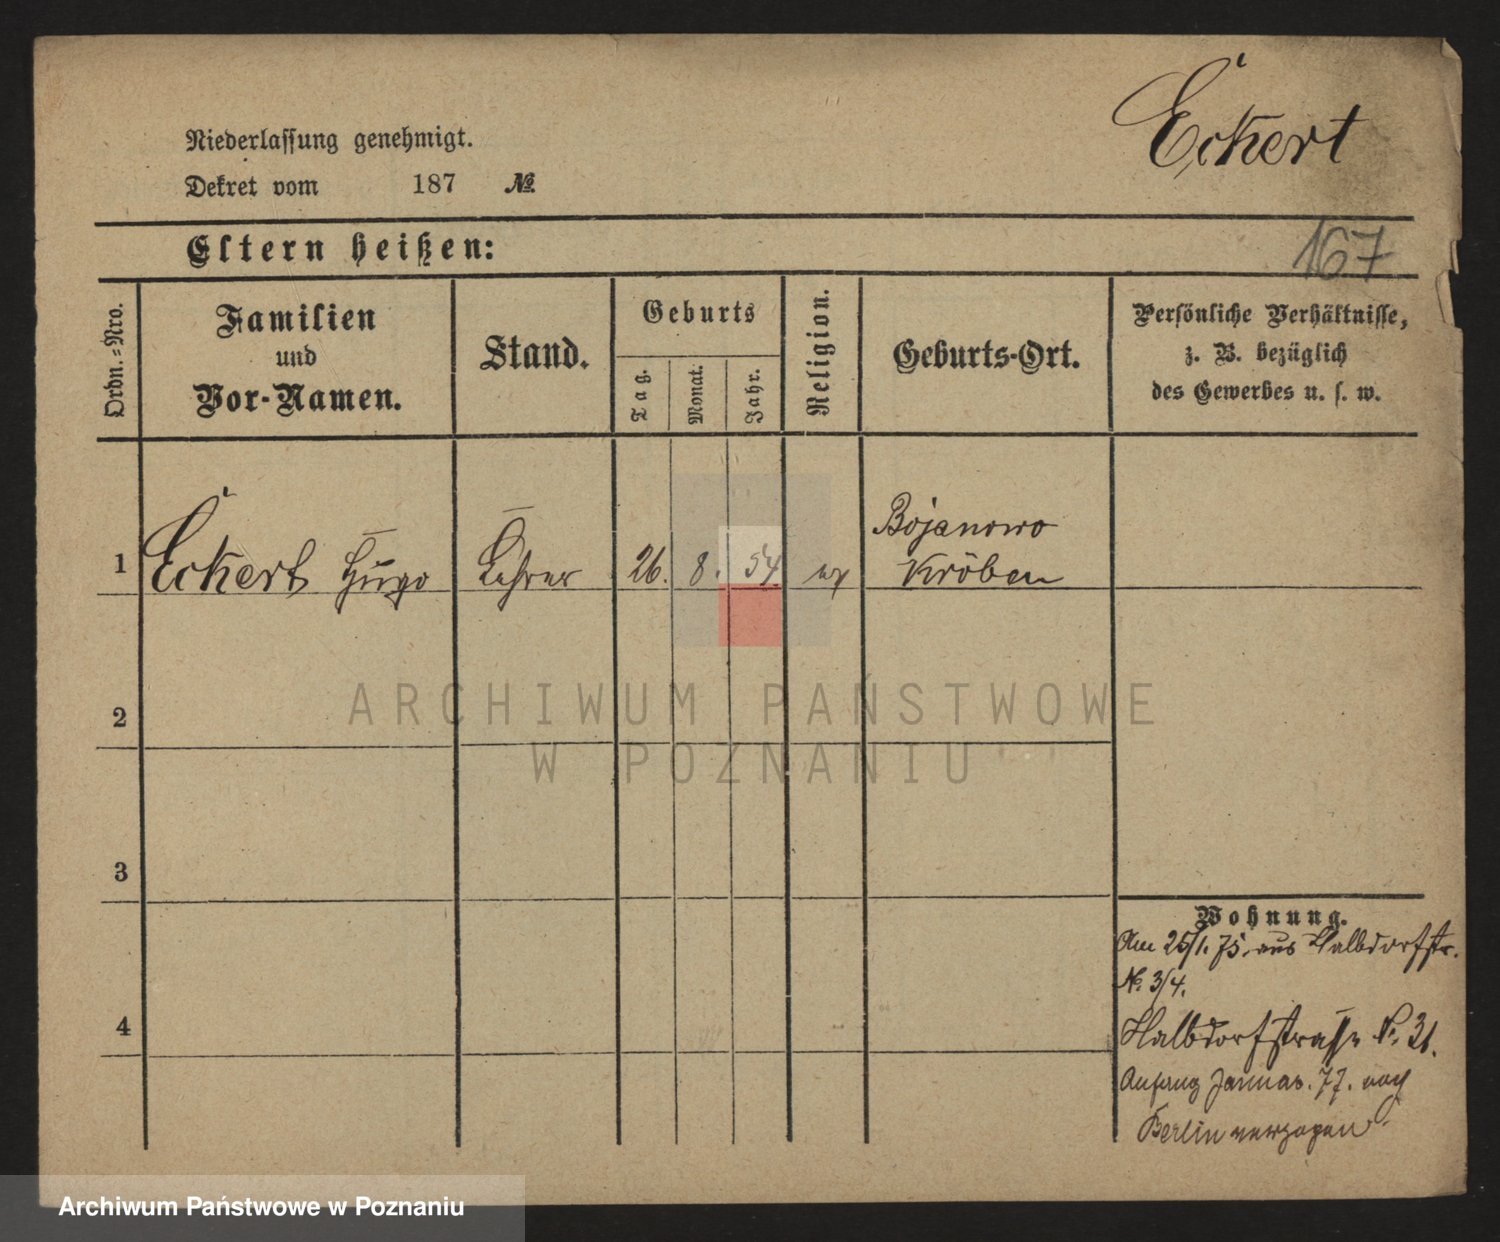 Eckert
Niederlassung genehmigt.
Dekret vom 187 №
167
Eltern heißen:
Ordn.=Nro.
Familien
und
Vor-Namen.
Stand.
Geburts
Tag.
Monat.
Jahr.
Religion.
Geburts-Ort.
Persönliche Verhältnisse,
z. B. bezüglich
des Gewerbes u. s. w.
Bojanowo
1 Eckert Hugo Lehrer 26. 8. 54 Kröben
2
3
4
Wohnung.
Am 25/1. 75. aus Halbdorfstr.
№ 3/4.
Halbdorfstrasse №. 31.
Anfang Januar. 77. nach
Berlin verzogen
ARCHIWUM PAŃSTWOWE
W POZNANIU
Archiwum Państwowe w Poznaniu